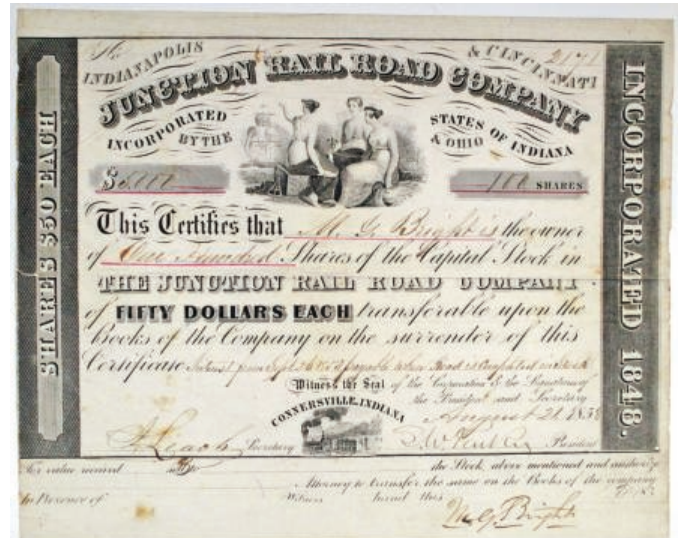 No 2171
INDIANAPOLIS & CINCINNATI
JUNCTION RAIL ROAD COMPANY
INCORPORATED BY THE STATES OF INDIANA & OHIO
$5,000
100 SHARES
This Certifies that M. G. Bright is the owner
of One Hundred Shares of the Capital Stock in
THE JUNCTION RAIL ROAD COMPANY
of FIFTY DOLLARS EACH transferable upon the
Books of the Company on the surrender of this
Certificate Interest from payable when Road is Completed in Stock
Witness the Seal of the Corporation & the Signatures of
the President and Secretary
CONNERSVILLE, INDIANA
August 21, 185
Leach Secretary
President
SHARES $50 EACH
INCORPORATED 1848.
For value received
the Stock above mentioned and authorize
Attorney to transfer the same on the Books of the company
In Presence of
Witness hand this
M. G. Bright